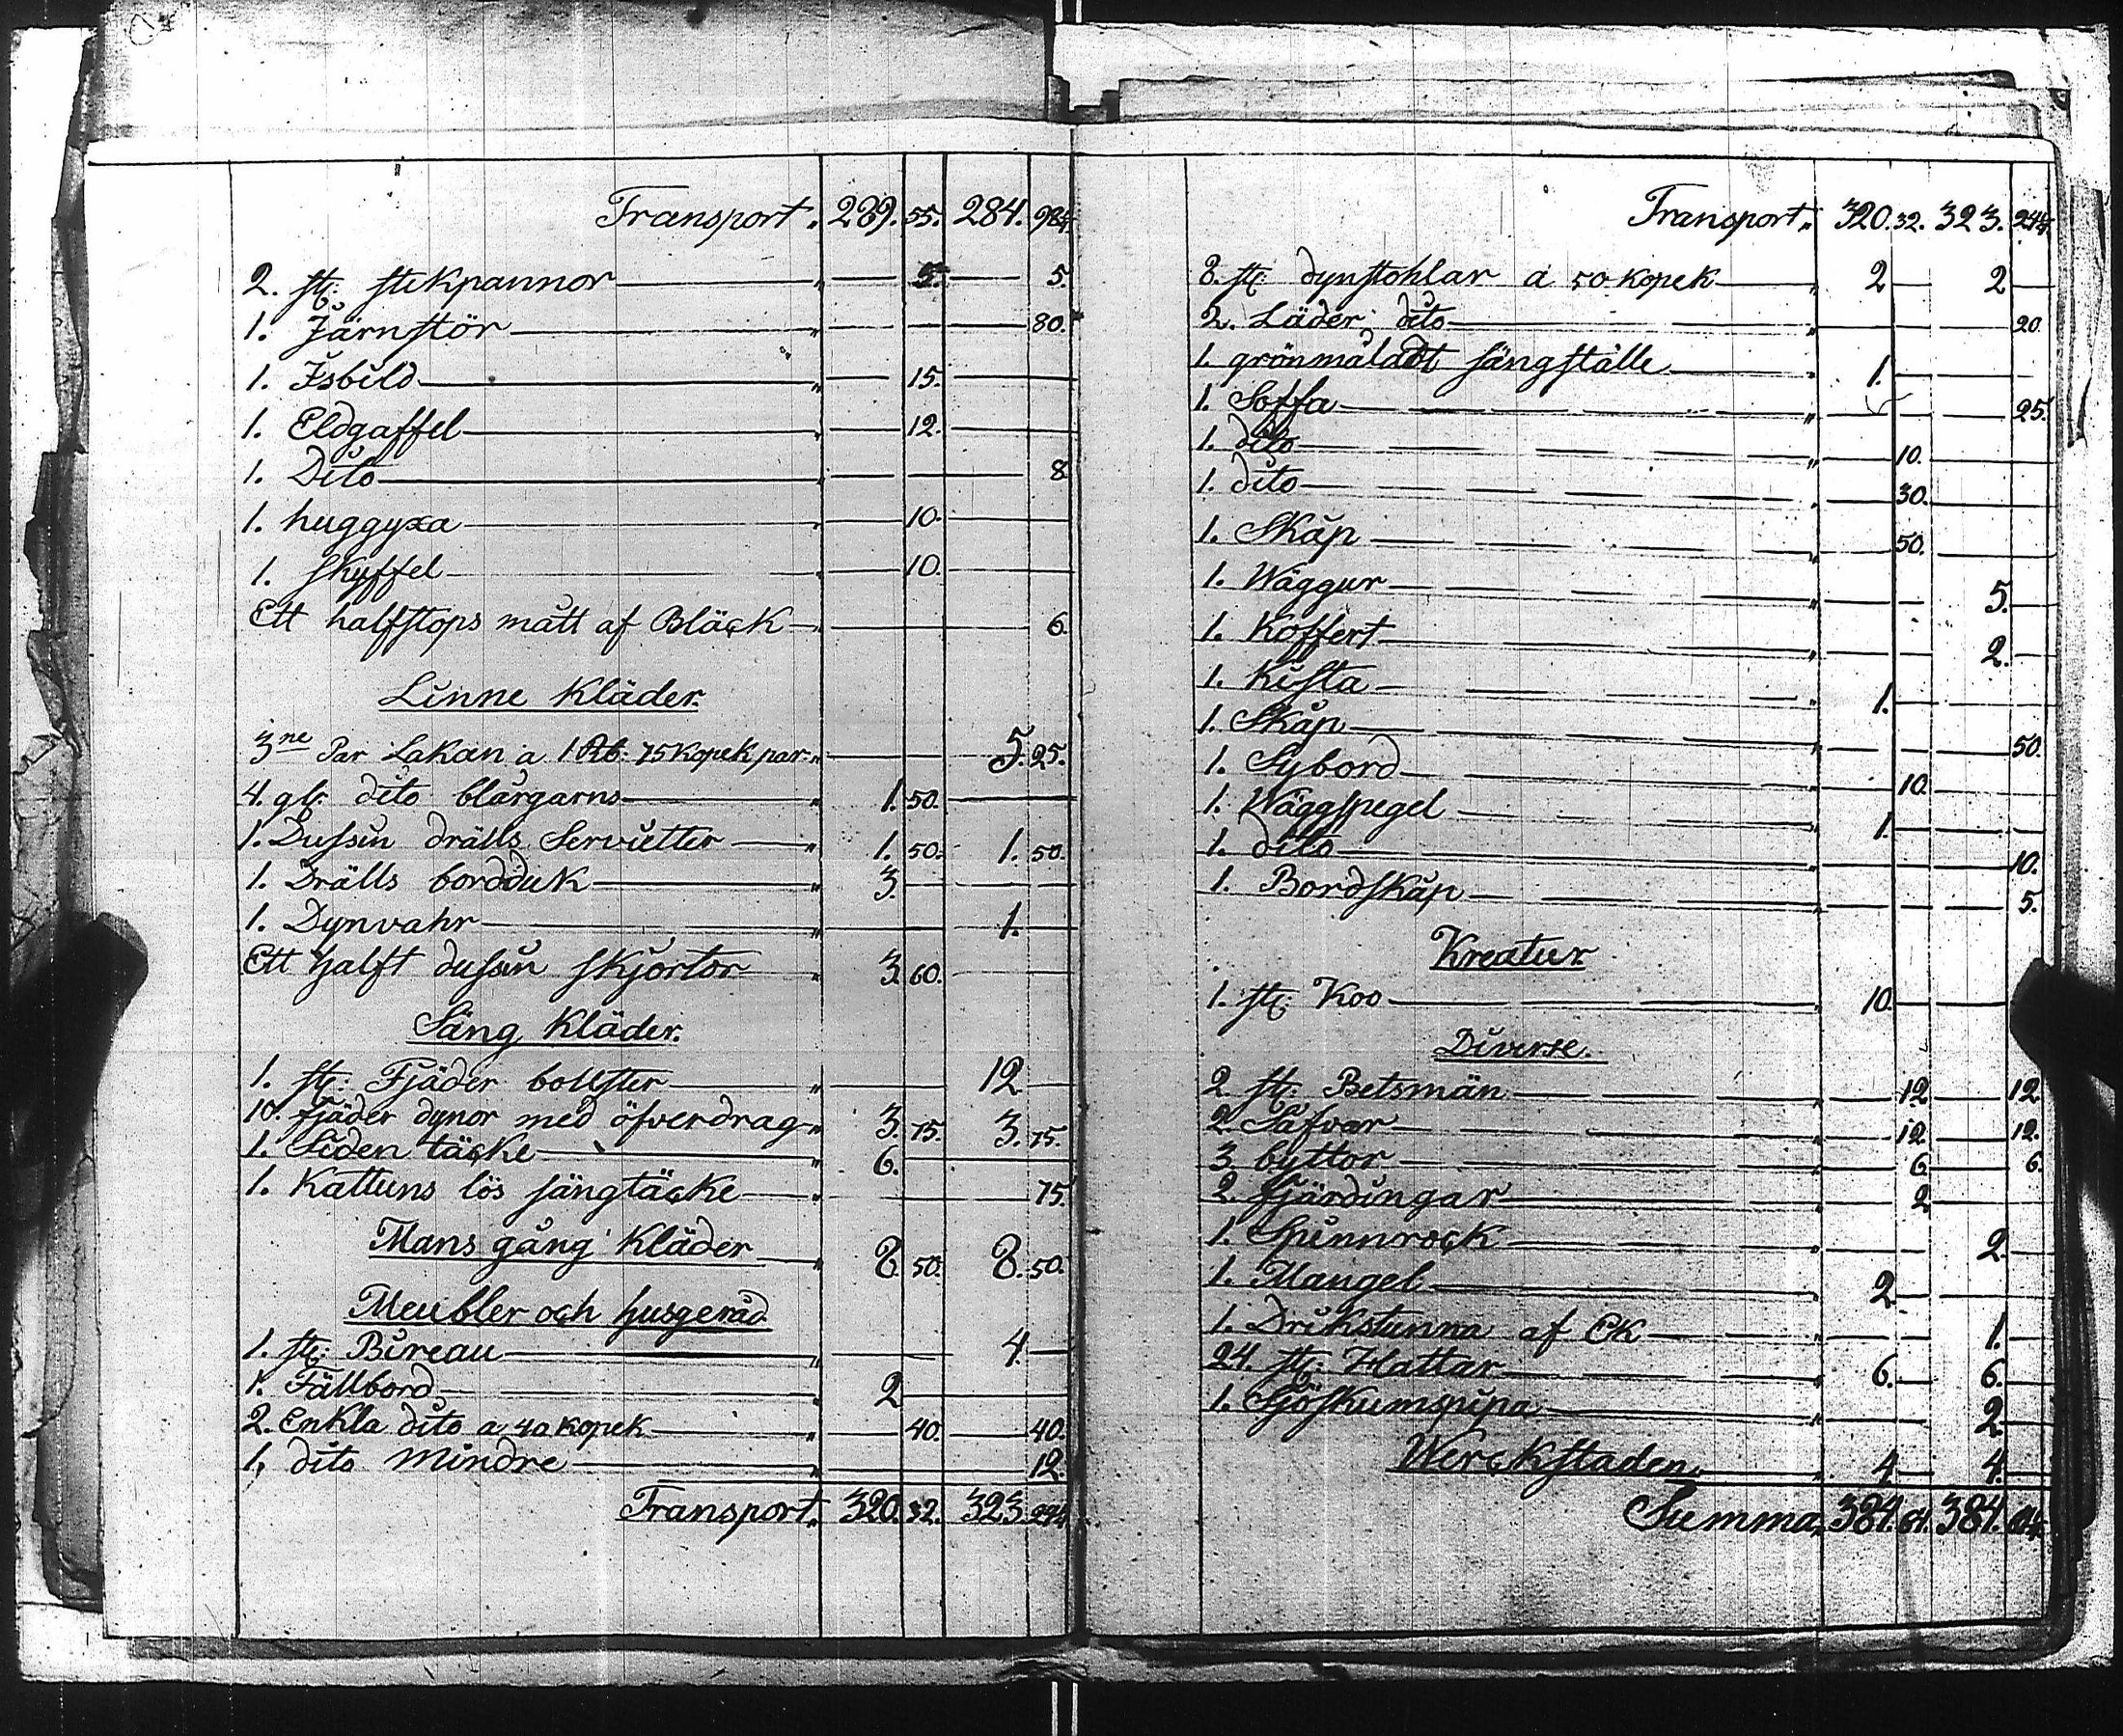 Transport. 289. 55. 284. 98¼
2. st: stekpannor 5. 5.
1. Järnstör 80.
1. Isbild 15.
1. Eldgaffel 12.
1. Dito 8
1. huggyxa 10.
1. skyffel 10.
Ett halfstops mått af Bläck 6.
Linne Kläder.
3ne Par Lakan a 1 Rb: 75 Kopek par 5. 25.
4. gl: dito blårgarns 1. 50.
1. Dussin drälls Servietter 1. 50. 1. 50.
1. Drälls bordduk 3.
1. Dynvahr 1.
Ett halft dussin skjortor 3. 60.
Säng Kläder.
1. st: Fjäder bollster 12
10. fjäder dynor med öfverdrag 3. 75. 3. 75.
1. Siden täcke 6.
1. Kattuns lös sängtäcke 75.
Mans gång Kläder 8. 50. 8. 50.
Meubler och husgeråd
1. st: Bireau 4.
1. Fällbord 2
2. Enkla dito a 40 kopek 40. 40.
1. dito Mindre 12.
Transport. 320. 32. 323. 24¼
Transport. 320. 32. 323. 24¼
8. st: dynstohlar a 50 Kopek 2 2
2. Läder dito 20.
1. grönmåladt sängställe 1.
1. Soffa 25.
1. dito 10.
1. dito 30.
1. Skåp 50.
1. Wäggur 5.
1. Koffert 2.
1. Kista 1.
1. Skåp 50.
1. Sybord 10.
1. Wäggspegel 1.
1. dito 10.
1. Bordskåp 5.
Kreatur
1. st: Koo 10.
Diverse.
2 st: Betsmän 12 12
2. Såfvar 12. 12.
3 byttor 6 6.
2. fjärdingar 2
1. Spinnrock 2.
1. Mangel 2
1. Drikstunna af Ek 1.
24. st: Hattar 6. 6.
1. Sjöskumspipa 2
Werckstaden 4 4.
Summa 384. 384.